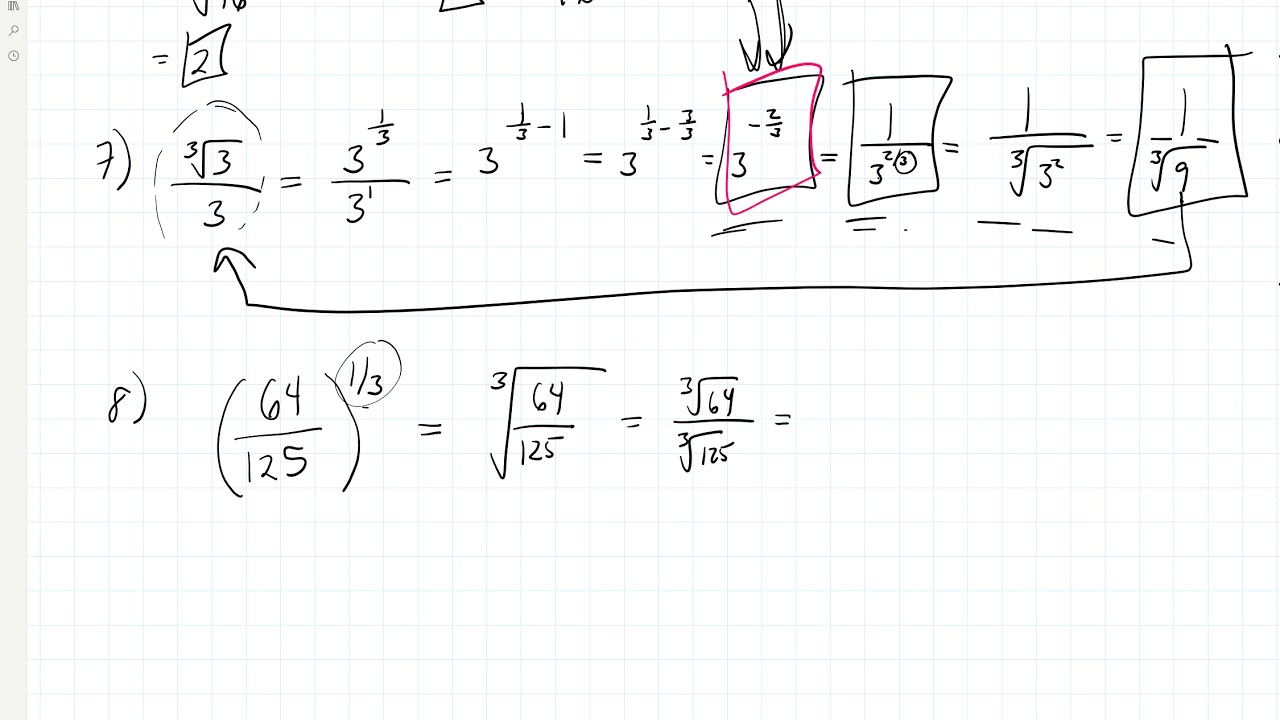 = 2
7) ∛3/3 = 3^(1/3)/3^1 = 3^(1/3 - 1) = 3^(1/3 - 3/3) = 3^(-2/3) = 1/3^(2/3) = 1/∛(3^2) = 1/∛9
8) (64/125)^(1/3) = ∛(64/125) = ∛64/∛125 =